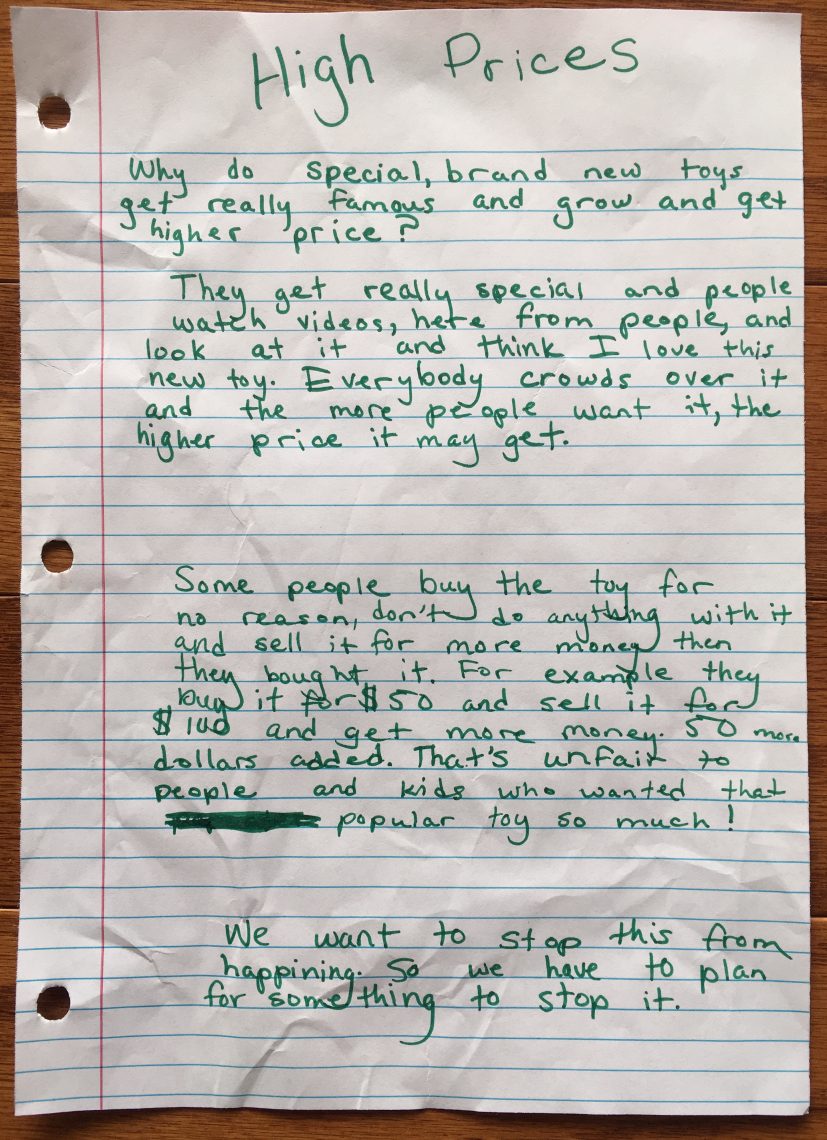 High Prices
Why do special, brand new toys
get really famous and grow and get
higher price?
They get really special and people
watch videos, here from people, and
look at it and think I love this
new toy. Everybody crowds over it
and the more people want it, the
higher price it may get.
Some people buy the toy for
no reason, don't do anything with it
and sell it for more money then
they bought it. For example they
buy it for $50 and sell it for
$100 and get more money. 50 more
dollars added. That's unfair to
people and kids who wanted that
popular toy so much!
We want to stop this from
happining. So we have to plan
for something to stop it.